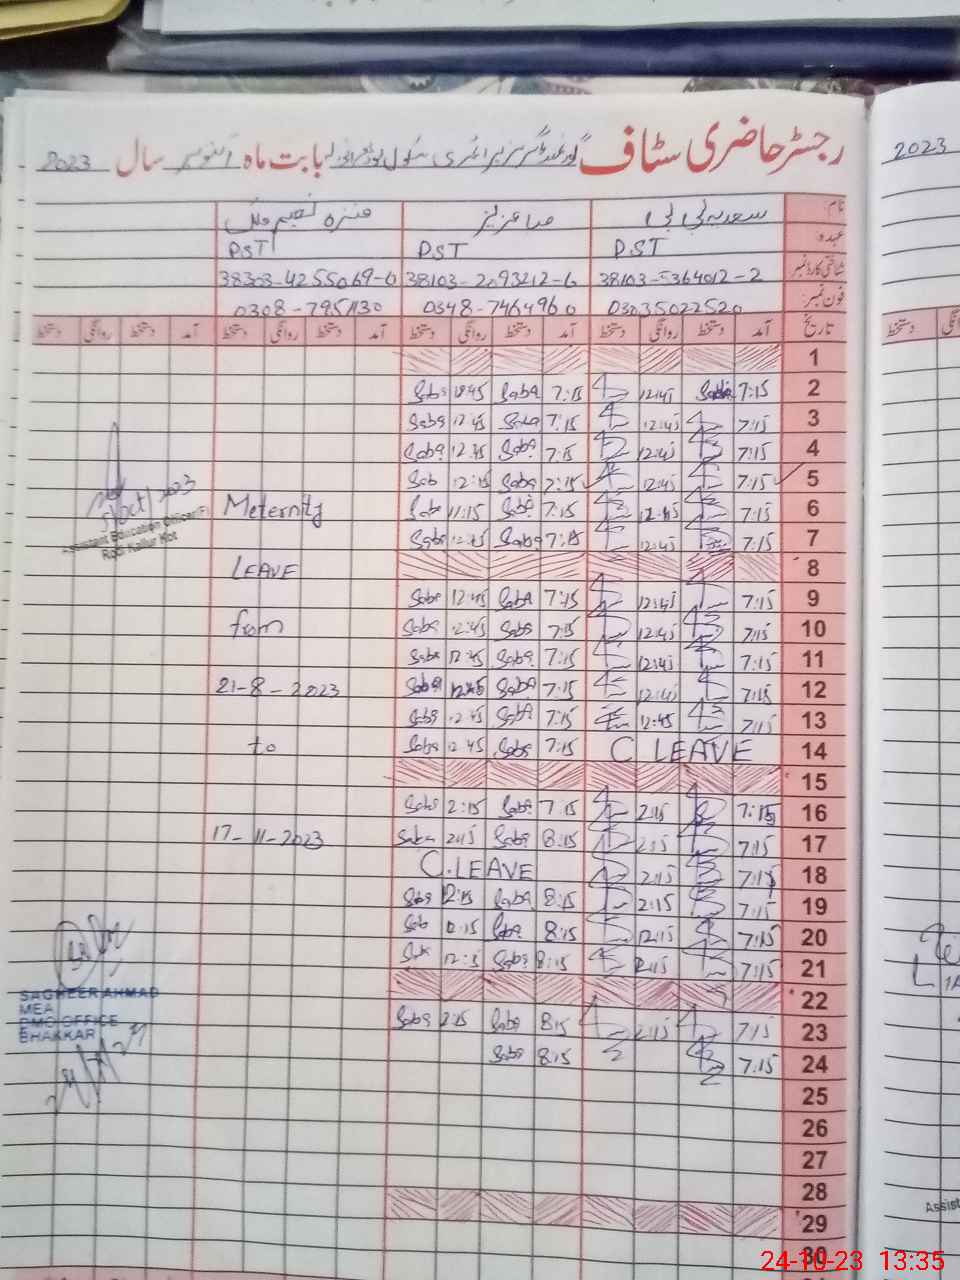 رجسٹر حاضری سٹاف گورنمنٹ گرلز پرائمری سکول بابت ماہ اکتوبر سال 2023
2023
نام سعدیہ بی بی صبا عزیز منزہ نعیم ملک
عہدہ PST PST PST
شناختی کارڈ نمبر 38103-5364012-2 38103-2093212-6 38303-4255069-0
فون نمبر 03035022520 0348-7464960 0308-7951130
تاریخ آمد دستخط روانگی دستخط آمد دستخط روانگی دستخط آمد دستخط روانگی دستخط آمد دستخط روانگی دستخط
1
2 7:15 12:45 7:15 Saba 12:45 Saba
3 7:15 12:45 7:15 Saba 12:45 Saba
4 7:15 12:45 7:15 Saba 12:45 Saba
5 7:15 12:45 7:15 Saba 12:15 Sab
6 7:15 12:45 7:15 Saba 11:15 Saba Meternity
5/Oct/2023
Assistant Education Officer (F)
7 7:15 12:45 7:15 Saba 12:45 Saba
8 LEAVE
9 7:15 12:45 7:15 Saba 12:45 Saba
10 7:15 12:45 7:15 Saba 12:45 Saba from
11 7:15 12:45 7:15 Saba 12:45 Saba
12 7:15 12:45 7:15 Saba 12:45 Saba 21-8-2023
13 7:15 12:45 7:15 Saba 12:45 Saba
14 C LEAVE 7:15 Saba 12:45 Saba to
15
16 7:15 2:15 7:15 Saba 2:15 Saba
17 7:15 2:15 8:15 Saba 2:15 Saba 17-11-2023
18 7:15 2:15 C.LEAVE
19 7:15 2:15 8:15 Saba 2:15 Saba
20 7:15 12:15 8:15 Saba 12:15 Sab
21 7:15 2:15 8:15 Saba 12:15 Saba
22
SAGHEER AHMAD
MEA
DMO OFFICE
BHAKKAR
23 7:15 2:15 8:15 Saba 2:15 Saba
24 7:15 8:15 Saba
25
26
27
28
29
30
Assist
24-10-23 13:35